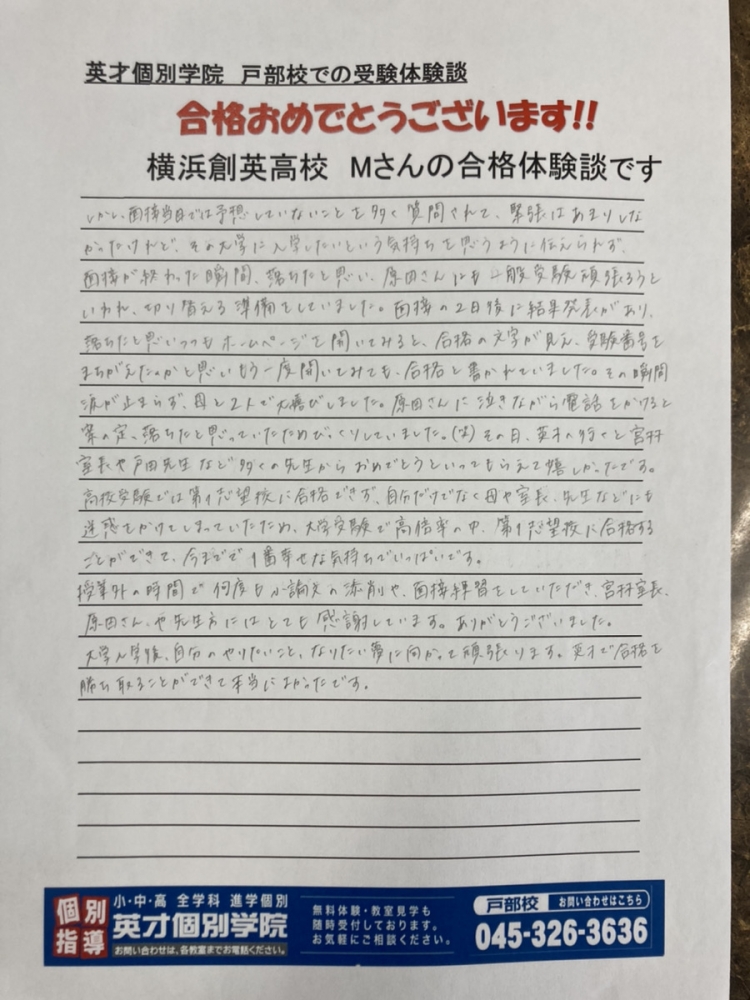 英才個別学院　戸部校での受験体験談
合格おめでとうございます!!
横浜創英高校　Mさんの合格体験談です
しかし、面接当日では予想していないことを多く質問されて、緊張はあまりしな
かったけれど、その大学に入学したいという気持ちを思うように伝えられず、
面接が終わった瞬間、落ちたと思い、原田さんにも一般受験頑張ろうと
いわれ、切り替える準備をしていました。面接の2日後に結果発表があり、
落ちたと思いつつもホームページを開いてみると、合格の文字が見え、受験番号を
まちがえたのかと思いもう一度開いてみても、合格と書かれていました。その瞬間
涙が止まらず、母と2人で大喜びしました。原田さんに泣きながら電話をかけると
案の定、落ちたと思っていたためびっくりしていました。(笑)その日、英才へ行くと宮林
室長や戸田先生など多くの先生からおめでとうといってもらえて嬉しかったです。
高校受験では第1志望校に合格できず、自分だけでなく母や室長、先生などにも
迷惑をかけてしまっていたため、大学受験で高倍率の中、第1志望校に合格する
ことができて、今までで1番幸せな気持ちでいっぱいです。
授業外の時間で何度も小論文の添削や、面接練習をしていただき、宮林室長、
原田さん、や先生方にはとても感謝しています。ありがとうございました。
大学入学後、自分のやりたいこと、なりたい夢に向かって頑張ります。英才で合格を
勝ち取ることができて本当によかったです。
個別指導
小・中・高 全学科 進学個別
英才個別学院
お問い合わせは、各教室までお電話ください。
無料体験・教室見学も
随時受付しております。
お気軽にご相談ください。
戸部校 お問い合わせはこちら
045-326-3636